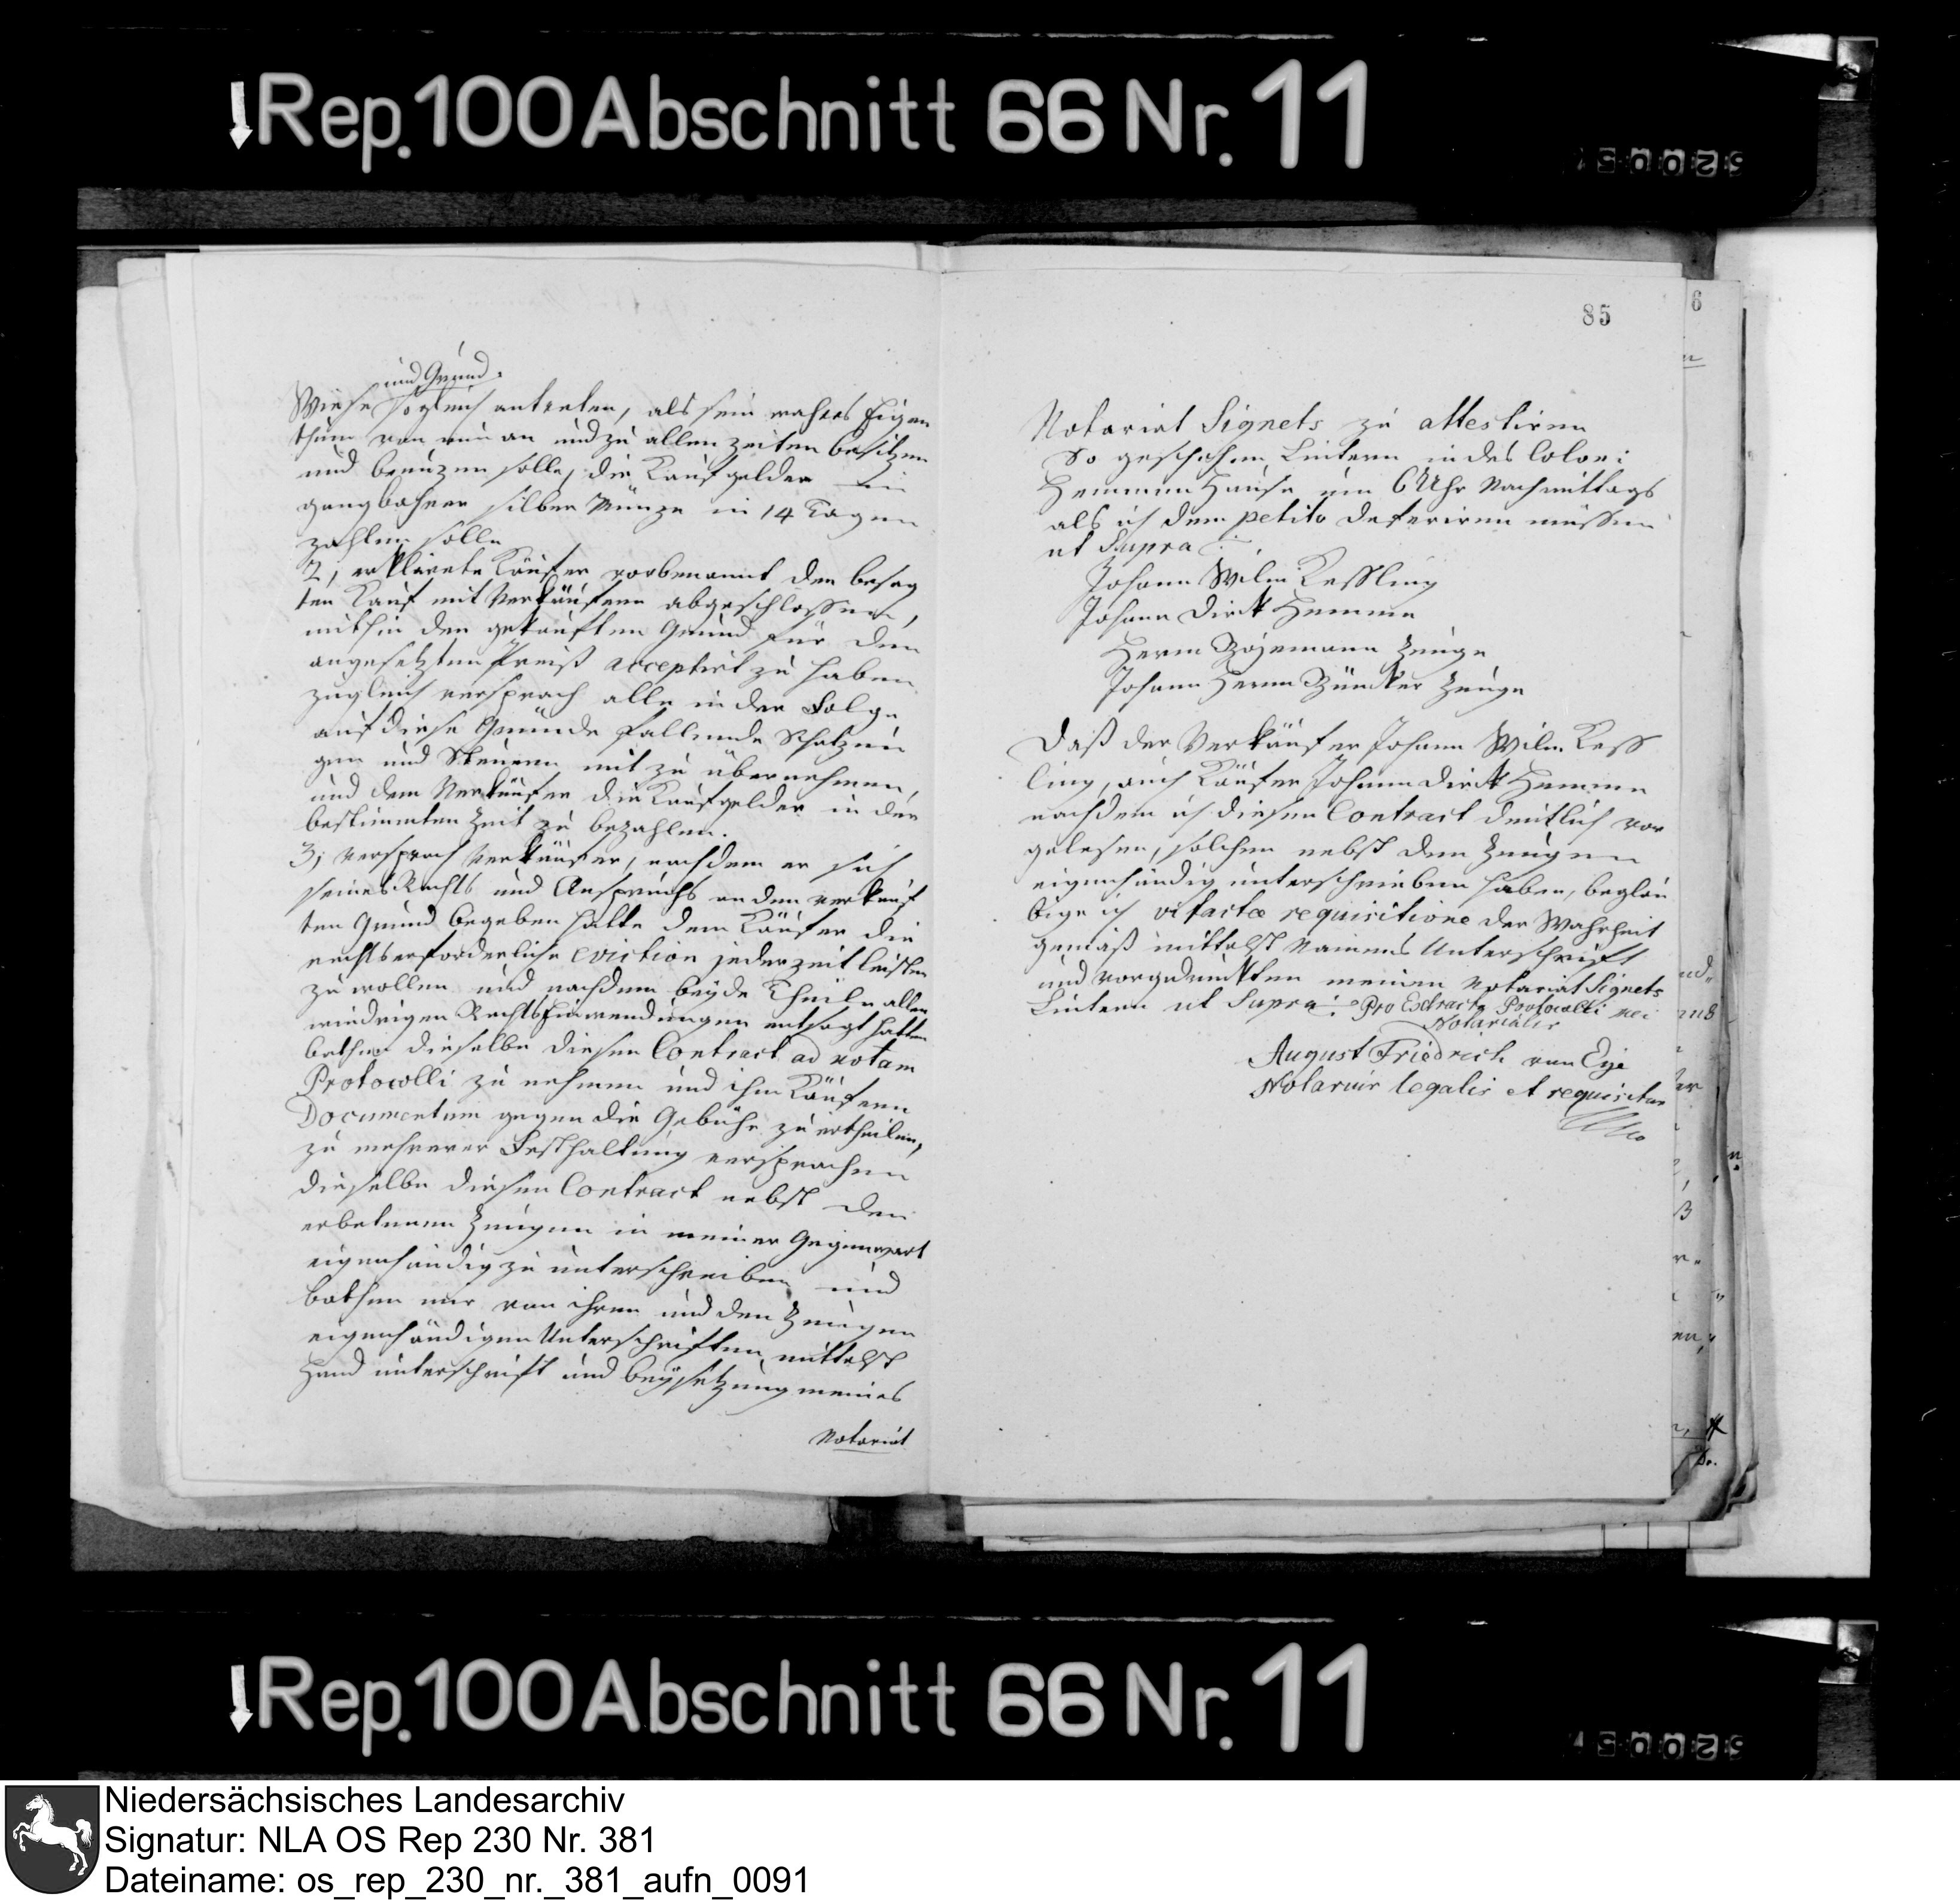 Rep. 100 Abschnitt 66 Nr. 11
85
6
und Grund
Wiese sogleich antreten, als sein wahres Eigen
thum von nun an und zu allen Zeiten besitzen
und benuzen solle, die Kaufgelder in
gangbahrer silber Münze in 14 Tagen
zahlen solle
2, erklärete Käufer vorbenannt den besag
ten Kauf mit Verkäufern abgeschlossen,
mithin den gekauften Grund für den
angesetzten Preiß acceptirt zu haben
zugleich versprach alle in der Folge
auf diese Gründe fallende Schatzun
gen und Steuern mit zu übernehmen,
und dem Verkäufer die Kaufgelder in der
bestimmten Zeit zu bezahlen.
3, versprach Verkäufer, nachdem er sich
seines Rechts und Anspruchs an den verkauf
ten Grund begeben hatte dem Käufer die
rechtserforderliche eviction jederzeit leisten
zu wollen und nachdem beyde Theile allen
wiedrigen Rechts Einwendungen entsagt hatten
bathen dieselbe diesen Contract ad notam
Protocolli zu nehmen und ihm Käufern
Documentum gegen die Gebühr zu ertheilen,
zu mehrerer Festhaltung versprachen
dieselbe diesen Contract nebst den
erbetenen Zeugen in meiner Gegenwart
eigenhändig zu unterschreiben und
bathen mir von ihren und den Zeugen
eigenhändigen Unterschriften mittelst
Hand unterschrift und Beysetzung meines
Notariat
Notariat Signets zu attestiren
So geschehen Lintern in des Coloni
Hemmen Hause um 6 Uhr Nachmittags
als ich dem petito deferiren müssen
ut Supra
Johann Wilm Kessling
Johann Dirk Hemme
Herm Zeuge
Johann Herm Bünker Zeuge
Daß der Verkäufer Johann Wilm Kess
ling, auch Käufer Johann Dirk Hemme
nachdem ich diesen Contract deutlich vor
gelesen, solchen nebst den Zeugen
eigenhändig unterschrieben haben, beglau
bige ich vi factae requisitione der Wahrheit
gemäß mittelst Namens Unterschrift
und vorgedruckten meinen Notariat Signets
Lintern ut Supra Pro Extractu Protocolli mei
Notarialis
August Friedrich von Eye
Notarius legalis et requisitus
Rep. 100 Abschnitt 66 Nr. 11
Niedersächsisches Landesarchiv
Signatur: NLA OS Rep 230 Nr. 381
Dateiname: os_rep_230_nr._381_aufn_0091